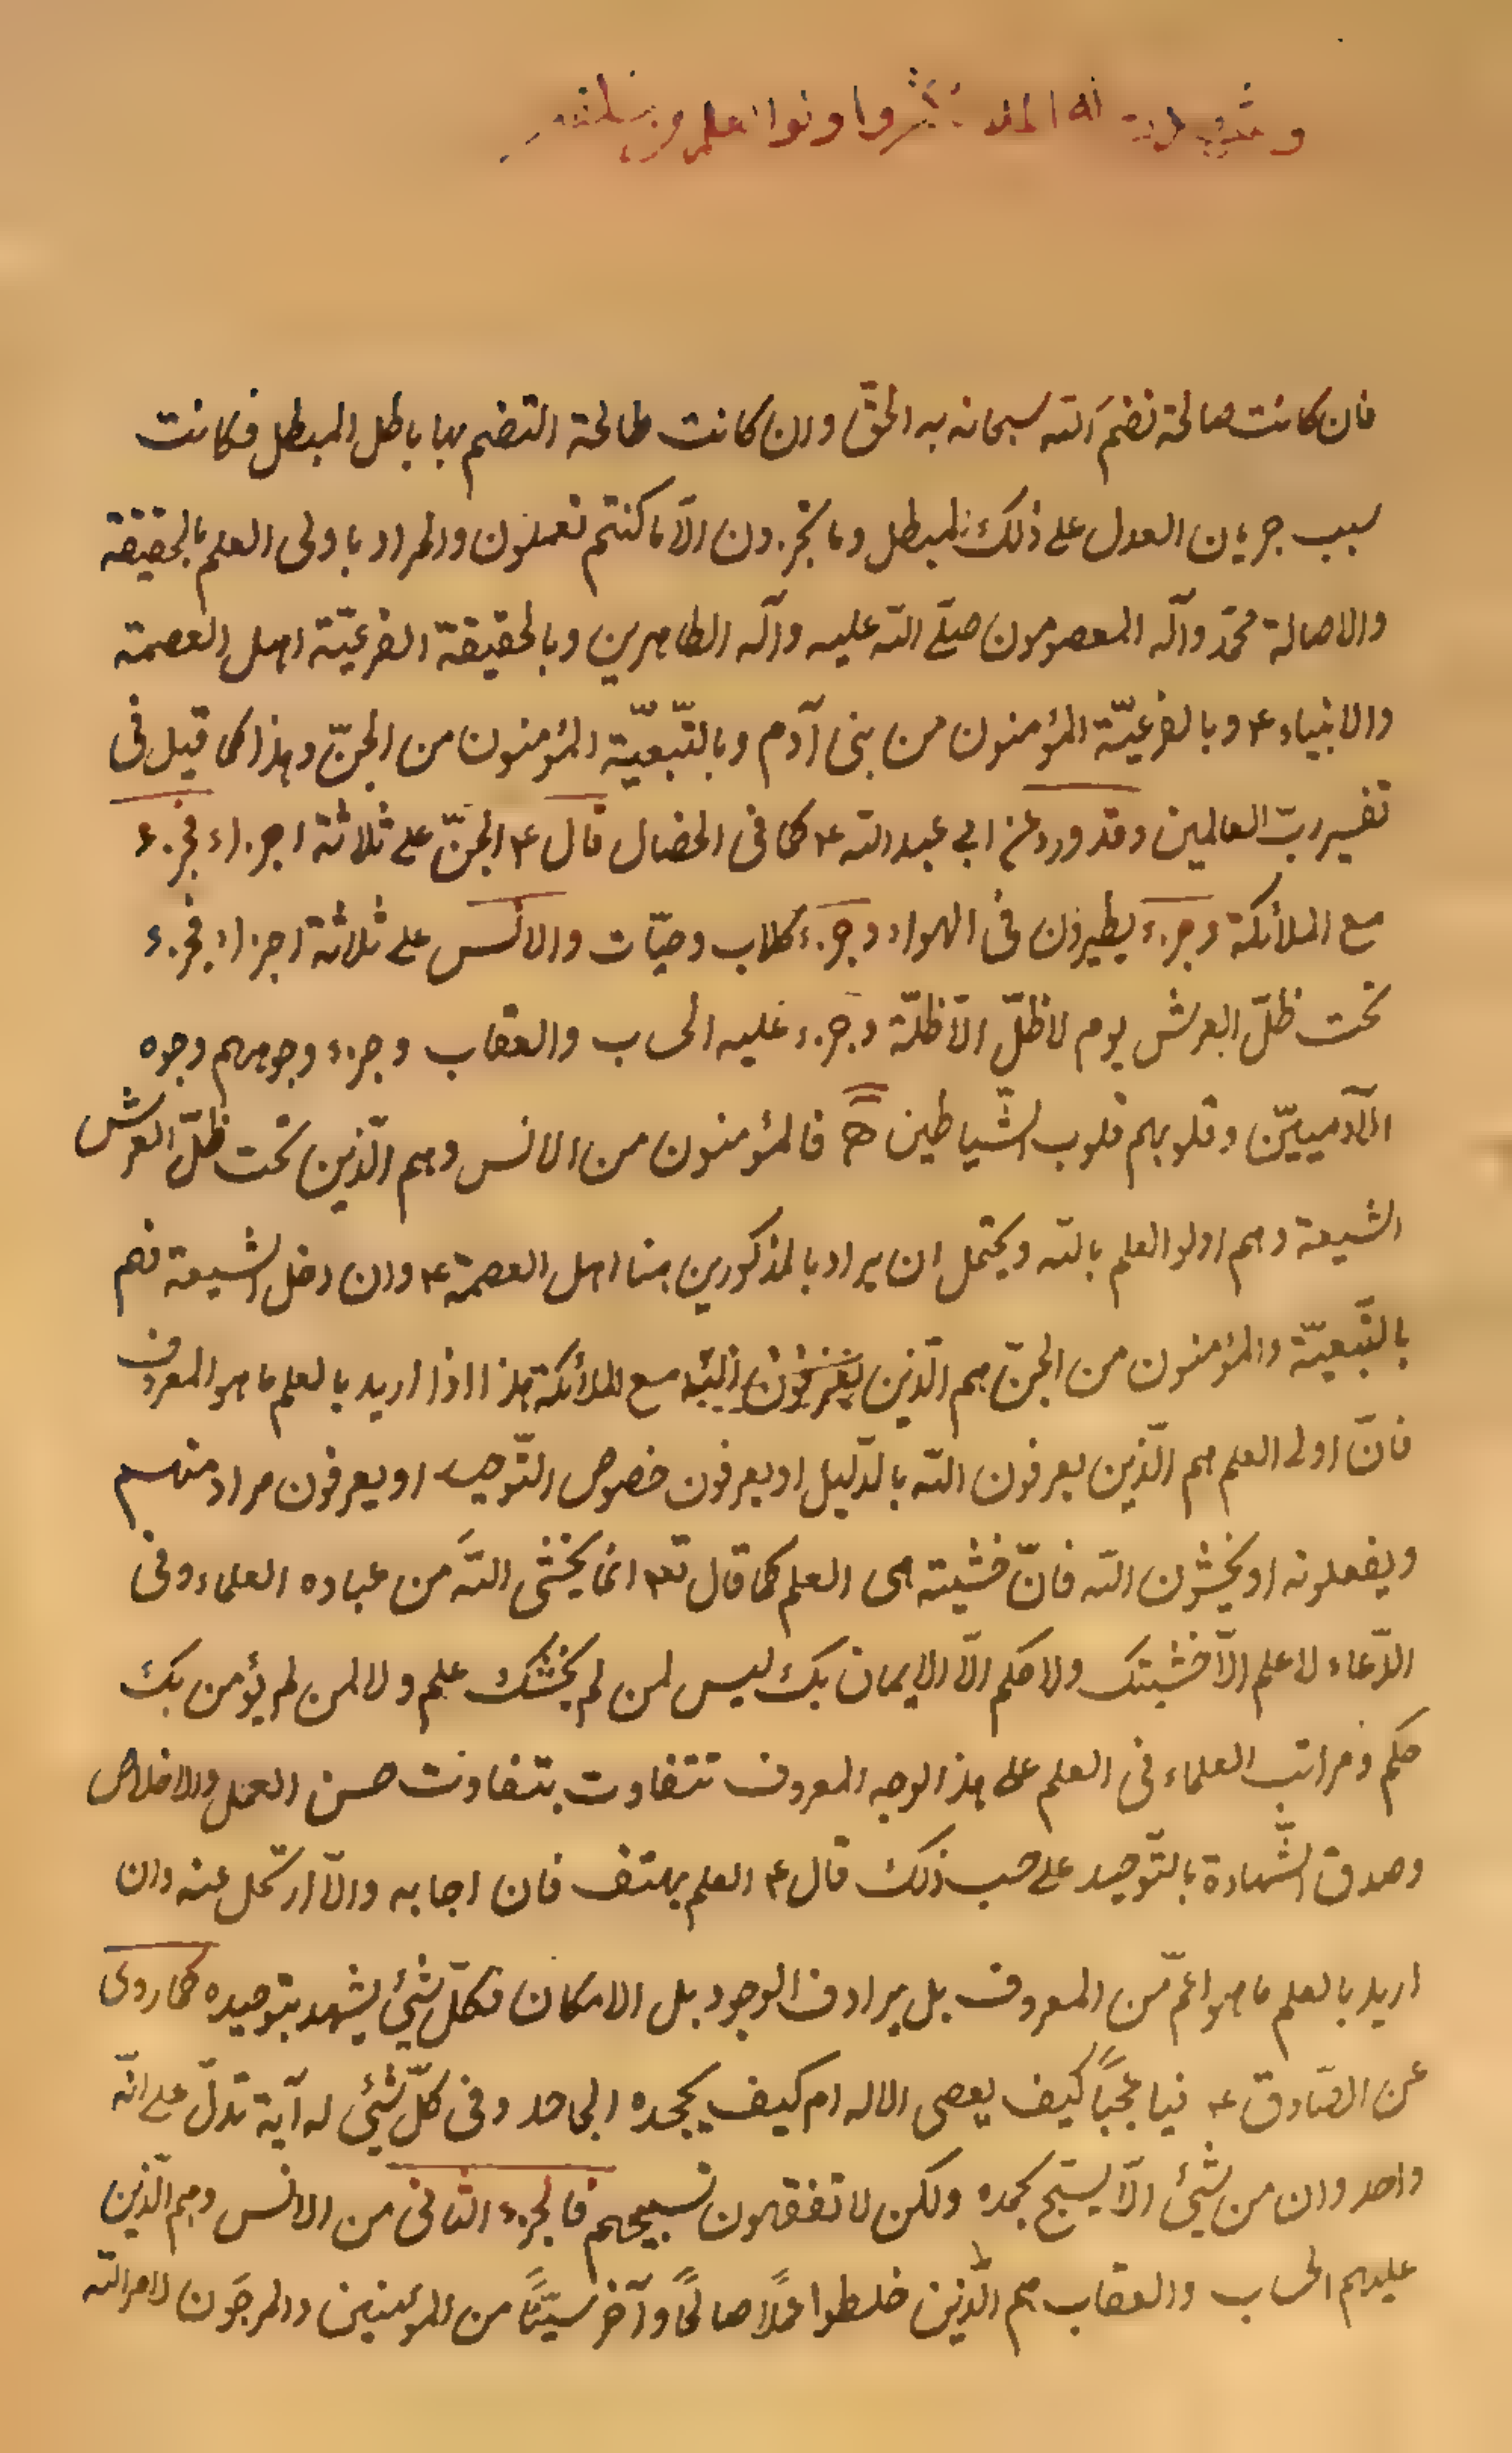 فان كانت صالحة نضم الله سبحانه به الحقّ وان كانت طالحة التضم بها باطل المبطل فكانت
سبب جريان العدل على ذلك المبطل وما تجزون الّا ما كنتم تعملون والمراد باولى العلم بالحقيقة
والاصالة محمّد وآله المعصومون صلّى الله عليه وآله الطاهرين وبالحقيقة الفرعيّة اهل العصمة
والانبياء ع وبالفرعيّة المؤمنون من بنى آدم وبالتّبعيّة المؤمنون من الجنّ وهذا كما قيل فى
تفسير ربّ العالمين وقد ورد عن ابي عبد الله ع كما فى الخصال قال ع الجنّ على ثلاثة اجزاء فجزء
مع الملائكة وجزء يطيرون فى الهواء وجزء كلاب وحيّات والانس على ثلاثة اجزاء فجزء
تحت ظلّ العرش يوم لا ظلّ الّا ظلّه وجزء عليه الحساب والعقاب وجزء وجوههم وجوه
الآدميين وقلوبهم قلوب الشّياطين فالمؤمنون من الانس وهم الّذين تحت ظلّ العرش
الشيعة وهم اولو العلم بالله ويحتمل ان يراد بالمذكورين هنا اهل العصمة ع وان دخل الشيعة فهم
بالتّبعيّة والمؤمنون من الجنّ هم الّذين مع الملائكة هذا اذا اريد بالعلم ما هو المعروف
فانّ اولى العلم هم الّذين يعرفون الله بالدّليل او يعرفون خصوص التّوحيد او يعرفون مراد منهم
ويفعلونه او يخشون الله فانّ خشيته هى العلم كما قال تعالى انما يخشى اللهَ من عباده العلماء وفى
الدّعاء لا علم الّا خشيتك ولا حكم الّا الايمان بك ليس لمن لم يخشك علم ولا لمن لم يؤمن بك
حكم ومراتب العلماء فى العلم على هذا الوجه المعروف تتفاوت بتفاوت حسن العمل والاخلاص
وصدق الشّهادة بالتّوحيد على حسب ذلك قال ع العلم يهتف فان اجابه والّا ارتحل عنه وان
اريد بالعلم ما هو اعمّ من المعروف بل يرادف الوجود بل الامكان فكلّ شئ يشهد بتوحيده كما روى
عن الصّادق ع فيا عجبًا كيف يعصى الاله ام كيف يجحده الجاحد وفى كلّ شئ له آية تدلّ على انّه
واحد وان من شئ الّا يسبّح بحمده ولكن لا تفقهون تسبيحهم فالجزء الثانى من الانس وهم الّذين
عليهم الحساب والعقاب هم الّذين خلطوا عملًا صالحًا وآخر سيّئًا من المؤمنين والمرجَون لامر الله